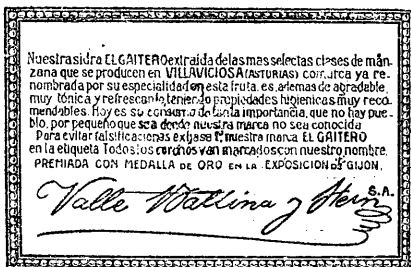 Nuestra sidra EL GAITERO extraída de las mas selectas clases de man-
zana que se producen en VILLAVICIOSA (ASTURIAS) comarca ya re-
nombrada por su especialidad en esta fruta. es, ademas de agradable,
muy tónica y refrescante, teniendo propiedades higienicas muy reco-
mendables. Hoy es su consumo de tanta importancia, que no hay pue-
blo, por pequeño que sea donde nuestra marca no sea conocida
Para evitar falsificaciones exijase nuestra marca EL GAITERO
en la etiqueta Todos los corchos van marcados con nuestro nombre.
PREMIADA CON MEDALLA DE ORO EN LA EXPOSICION DE GIJON.
Valle Ballina y Fern S.A.